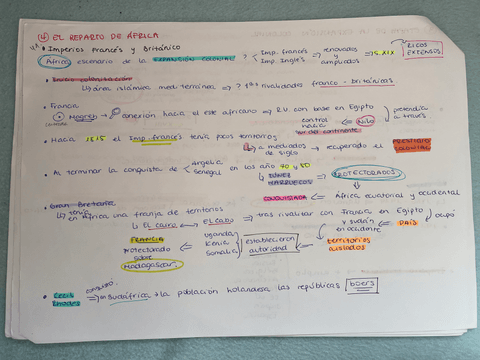 ④ EL REPARTO DE ÁFRICA
• Imperios Francés y Británico
África escenario de la EXPANSIÓN COLONIAL ? Imp. francés Imp. Inglés ⇒ renovados y ampliados ⇒ S.XIX RICOS EXTENSOS
•
↳ área islámica mediterránea ⇒ 1as rivalidades franco-británicas
• Francia
Magreb → conexión hacia el este africano → R.U. con base en Egipto pretendía a través
control hacia sur del continente Nilo
• Hacia 1815 el Imp. francés tenía pocos territorios
↳ a mediados de siglo → recuperado el PRESTIGIO COLONIAL
• Al terminar la conquista de Argelia Senegal en los años 70 y 80
↳ TÚNEZ MARRUECOS ⇒ PROTECTORADOS
CONQUISTADA ← África ecuatorial y occidental
• Gran Bretaña
↳ tenía en África una franja de territorios
↳ El cairo ↔ El cabo → tras rivalizar con Francia en Egipto y Sudán en occidente ocupó PAÍS
FRANCIA protectorado sobre Madagascar
Uganda Kenia Somalia establecieron autoridad territorios aislados
• Cecil Rhodes conquistó ⇒ Sudáfrica → la población holandesa las repúblicas boers